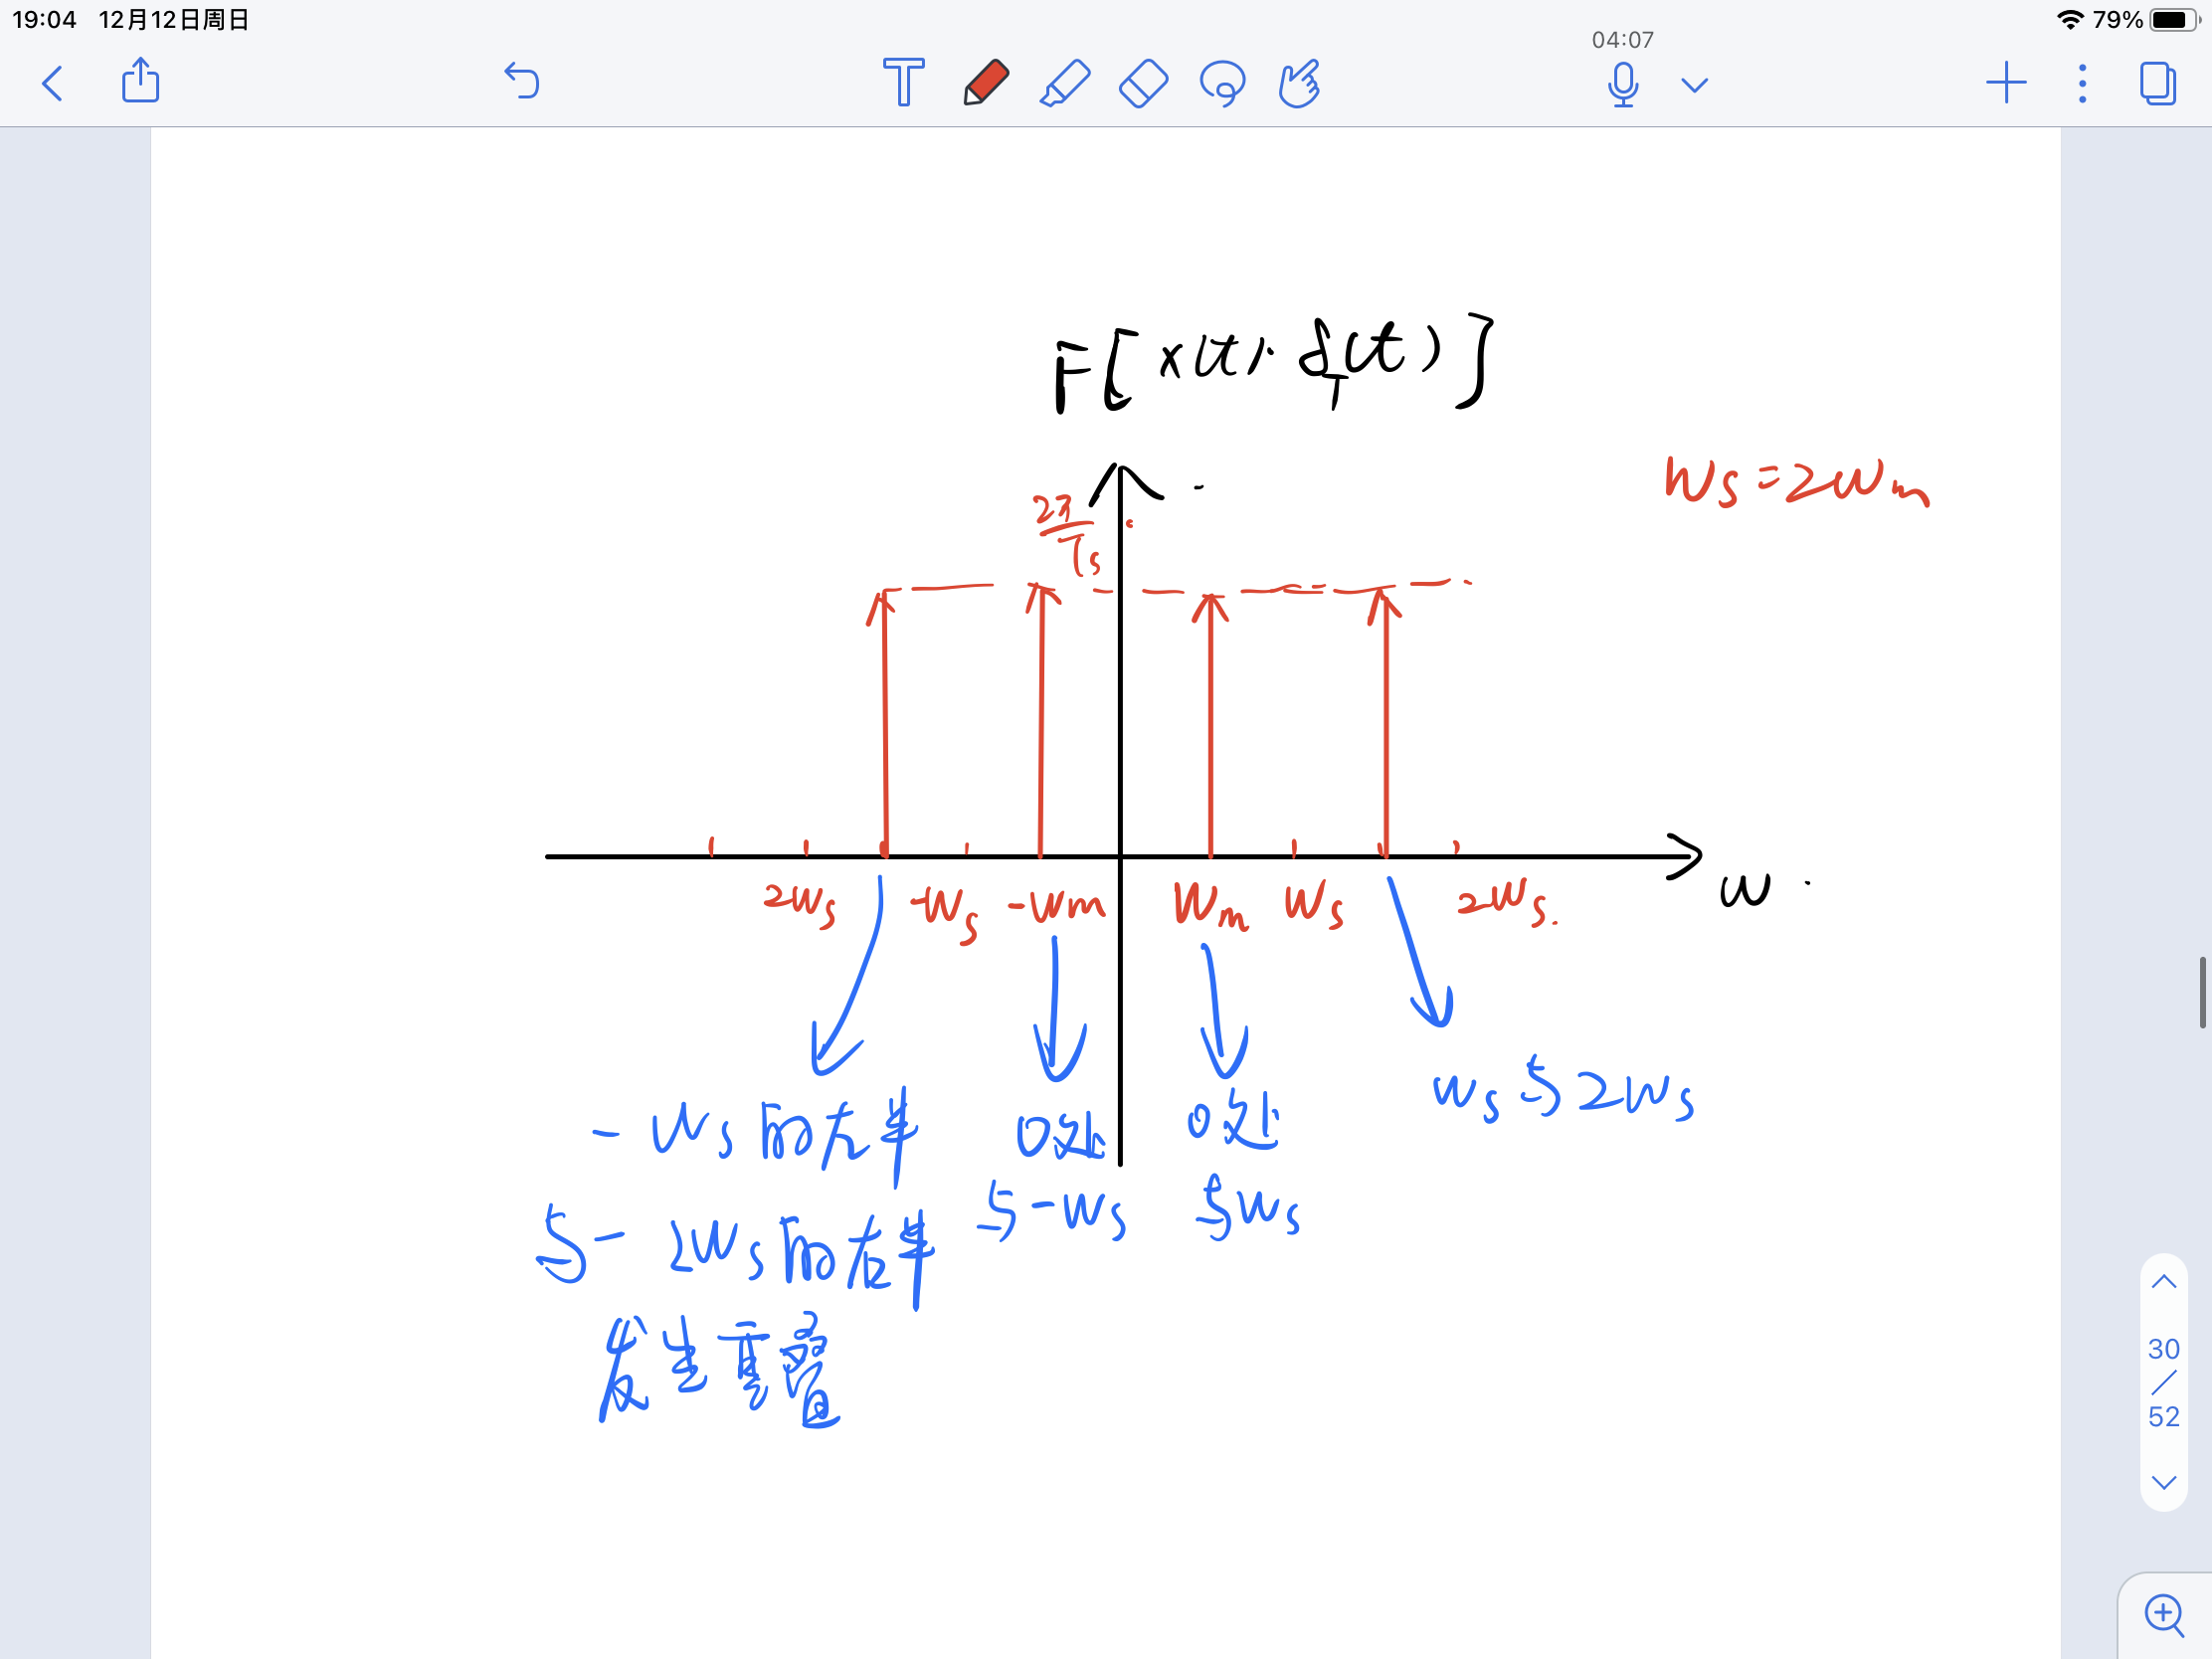 19:04 12月12日周日
79%
04:07
F[x(t)·δ_T(t)]
Ws=2Wm
2π/Ts
2Ws -Ws -Wm Wm Ws 2Ws.
w
-Ws的左半
与-2Ws的右半
发生重叠
0处
与-Ws
0处
与Ws
Ws与2Ws
30
/
52